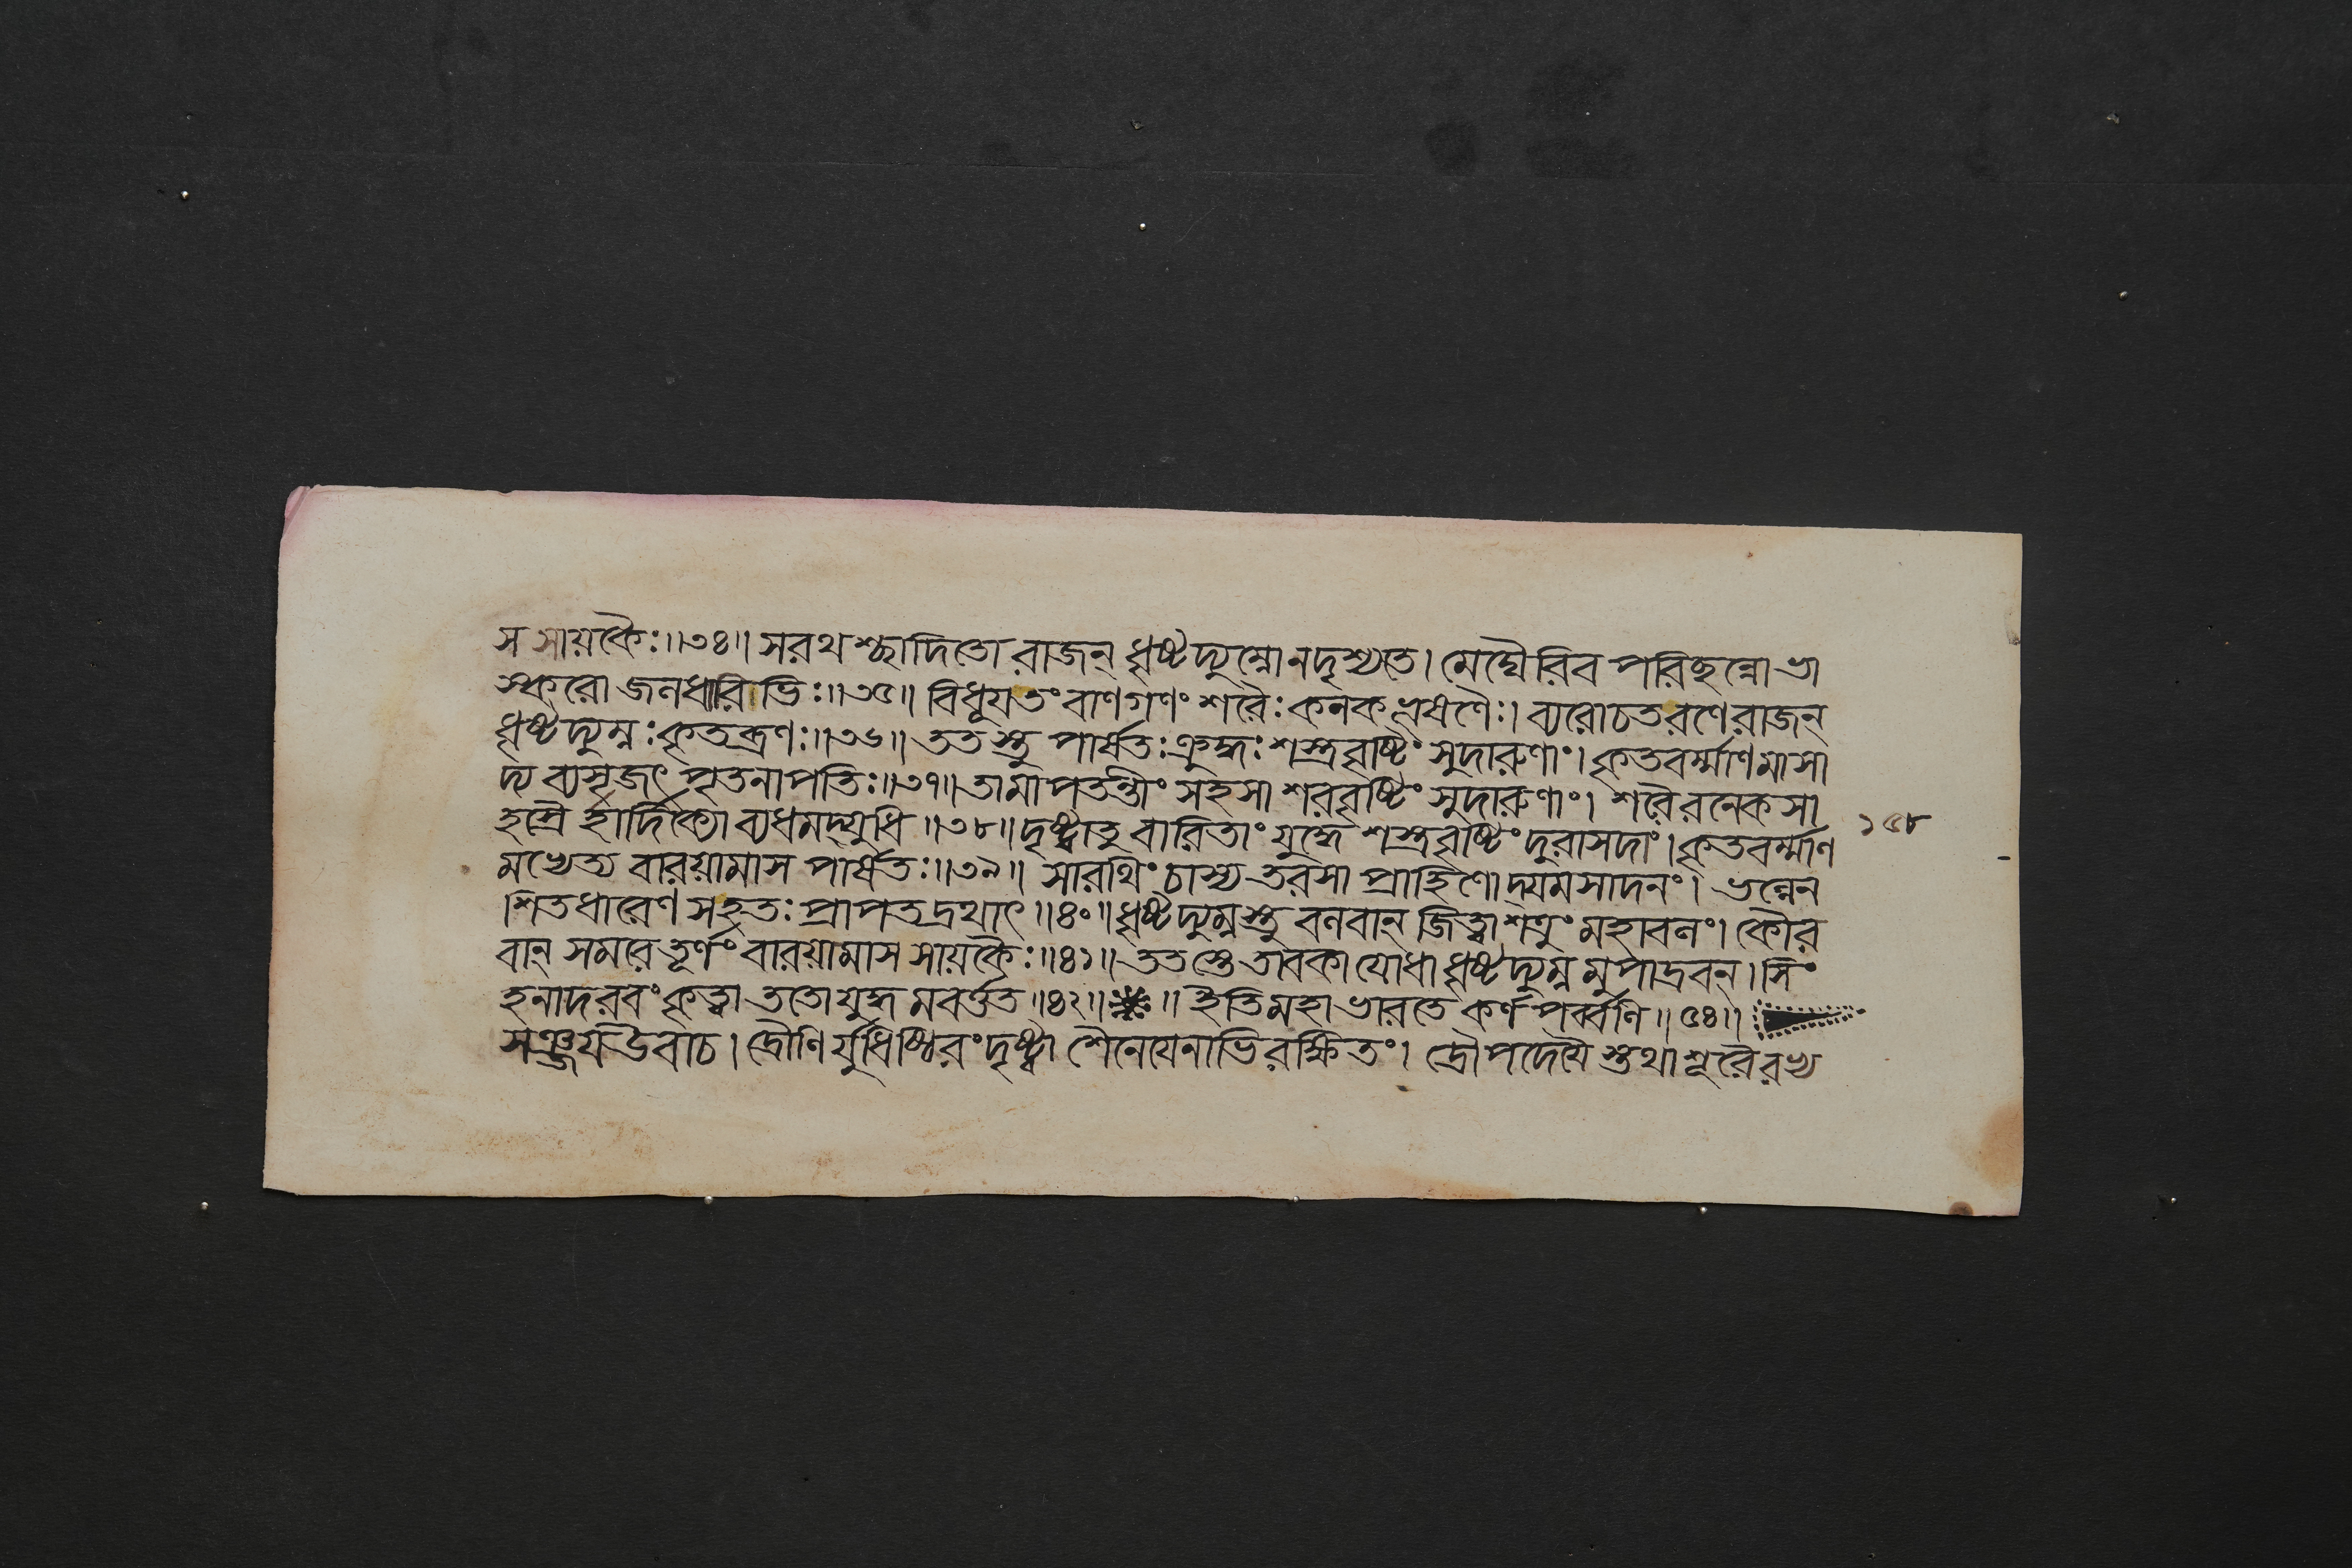 স সায়কৈঃ॥৩৪॥ সরথশ্ছাদিতো রাজন্ ধৃষ্টদ্যুম্নো নদৃশ্যতে। মেঘৈরিব পরিছন্নো ভা
স্করো জলধারিভিঃ॥৩৫॥ বিধূয় তং বাণগণং শরৈঃ কনকভূষণৈঃ। ব্যরোচত রণে রাজন্
ধৃষ্টদ্যুম্নঃ কৃতব্রণঃ॥৩৬॥ ততস্তু পার্ষতঃ ক্রুদ্ধঃ শস্ত্রবৃষ্টিং সুদারুণাং। কৃতবর্ম্মাণমাসা
দ্য ব্যসৃজৎ পৃতনাপতিঃ॥৩৭॥ তামাপতন্তীং সহসা শরবৃষ্টিং সুদারুণাং। শরৈরনেকসা
হস্রৈ র্হার্দিক্যো ব্যধমদ্যুধি॥৩৮॥ দৃষ্ট্বাতু বারিতাং যুদ্ধে শস্ত্রবৃষ্টিং দুরাসদাং। কৃতবর্ম্মাণ
১৫৮
মভ্যেত্য বারয়ামাস পার্ষতঃ॥৩৯॥ সারথিং চাস্য তরসা প্রাহিণোদ্যমসাদনং। ভল্লেন
শিতধারেণ সহতঃ প্রাপতদ্রথাৎ॥৪০॥ ধৃষ্টদ্যুম্নস্তু বলবান্ জিত্বা শত্রুং মহাবলং। কৌর
বান্ সমরে তূর্ণং বারয়ামাস সায়কৈঃ॥৪১॥ ততস্তে তাবকা যোধা ধৃষ্টদ্যুম্নমুপাদ্রবন্। সিং
হনাদরবং কৃত্বা ততো যুদ্ধমবর্ত্তত॥৪২॥ ॥ ইতি মহাভারতে কর্ণপর্ব্বণি॥৫৪॥
সঞ্জয়উবাচ। দ্রৌণির্যুধিষ্ঠিরং দৃষ্ট্বা শৈনেয়েনাভিরক্ষিতং। দ্রৌপদেয়ৈস্তথা শূরৈরভ্য